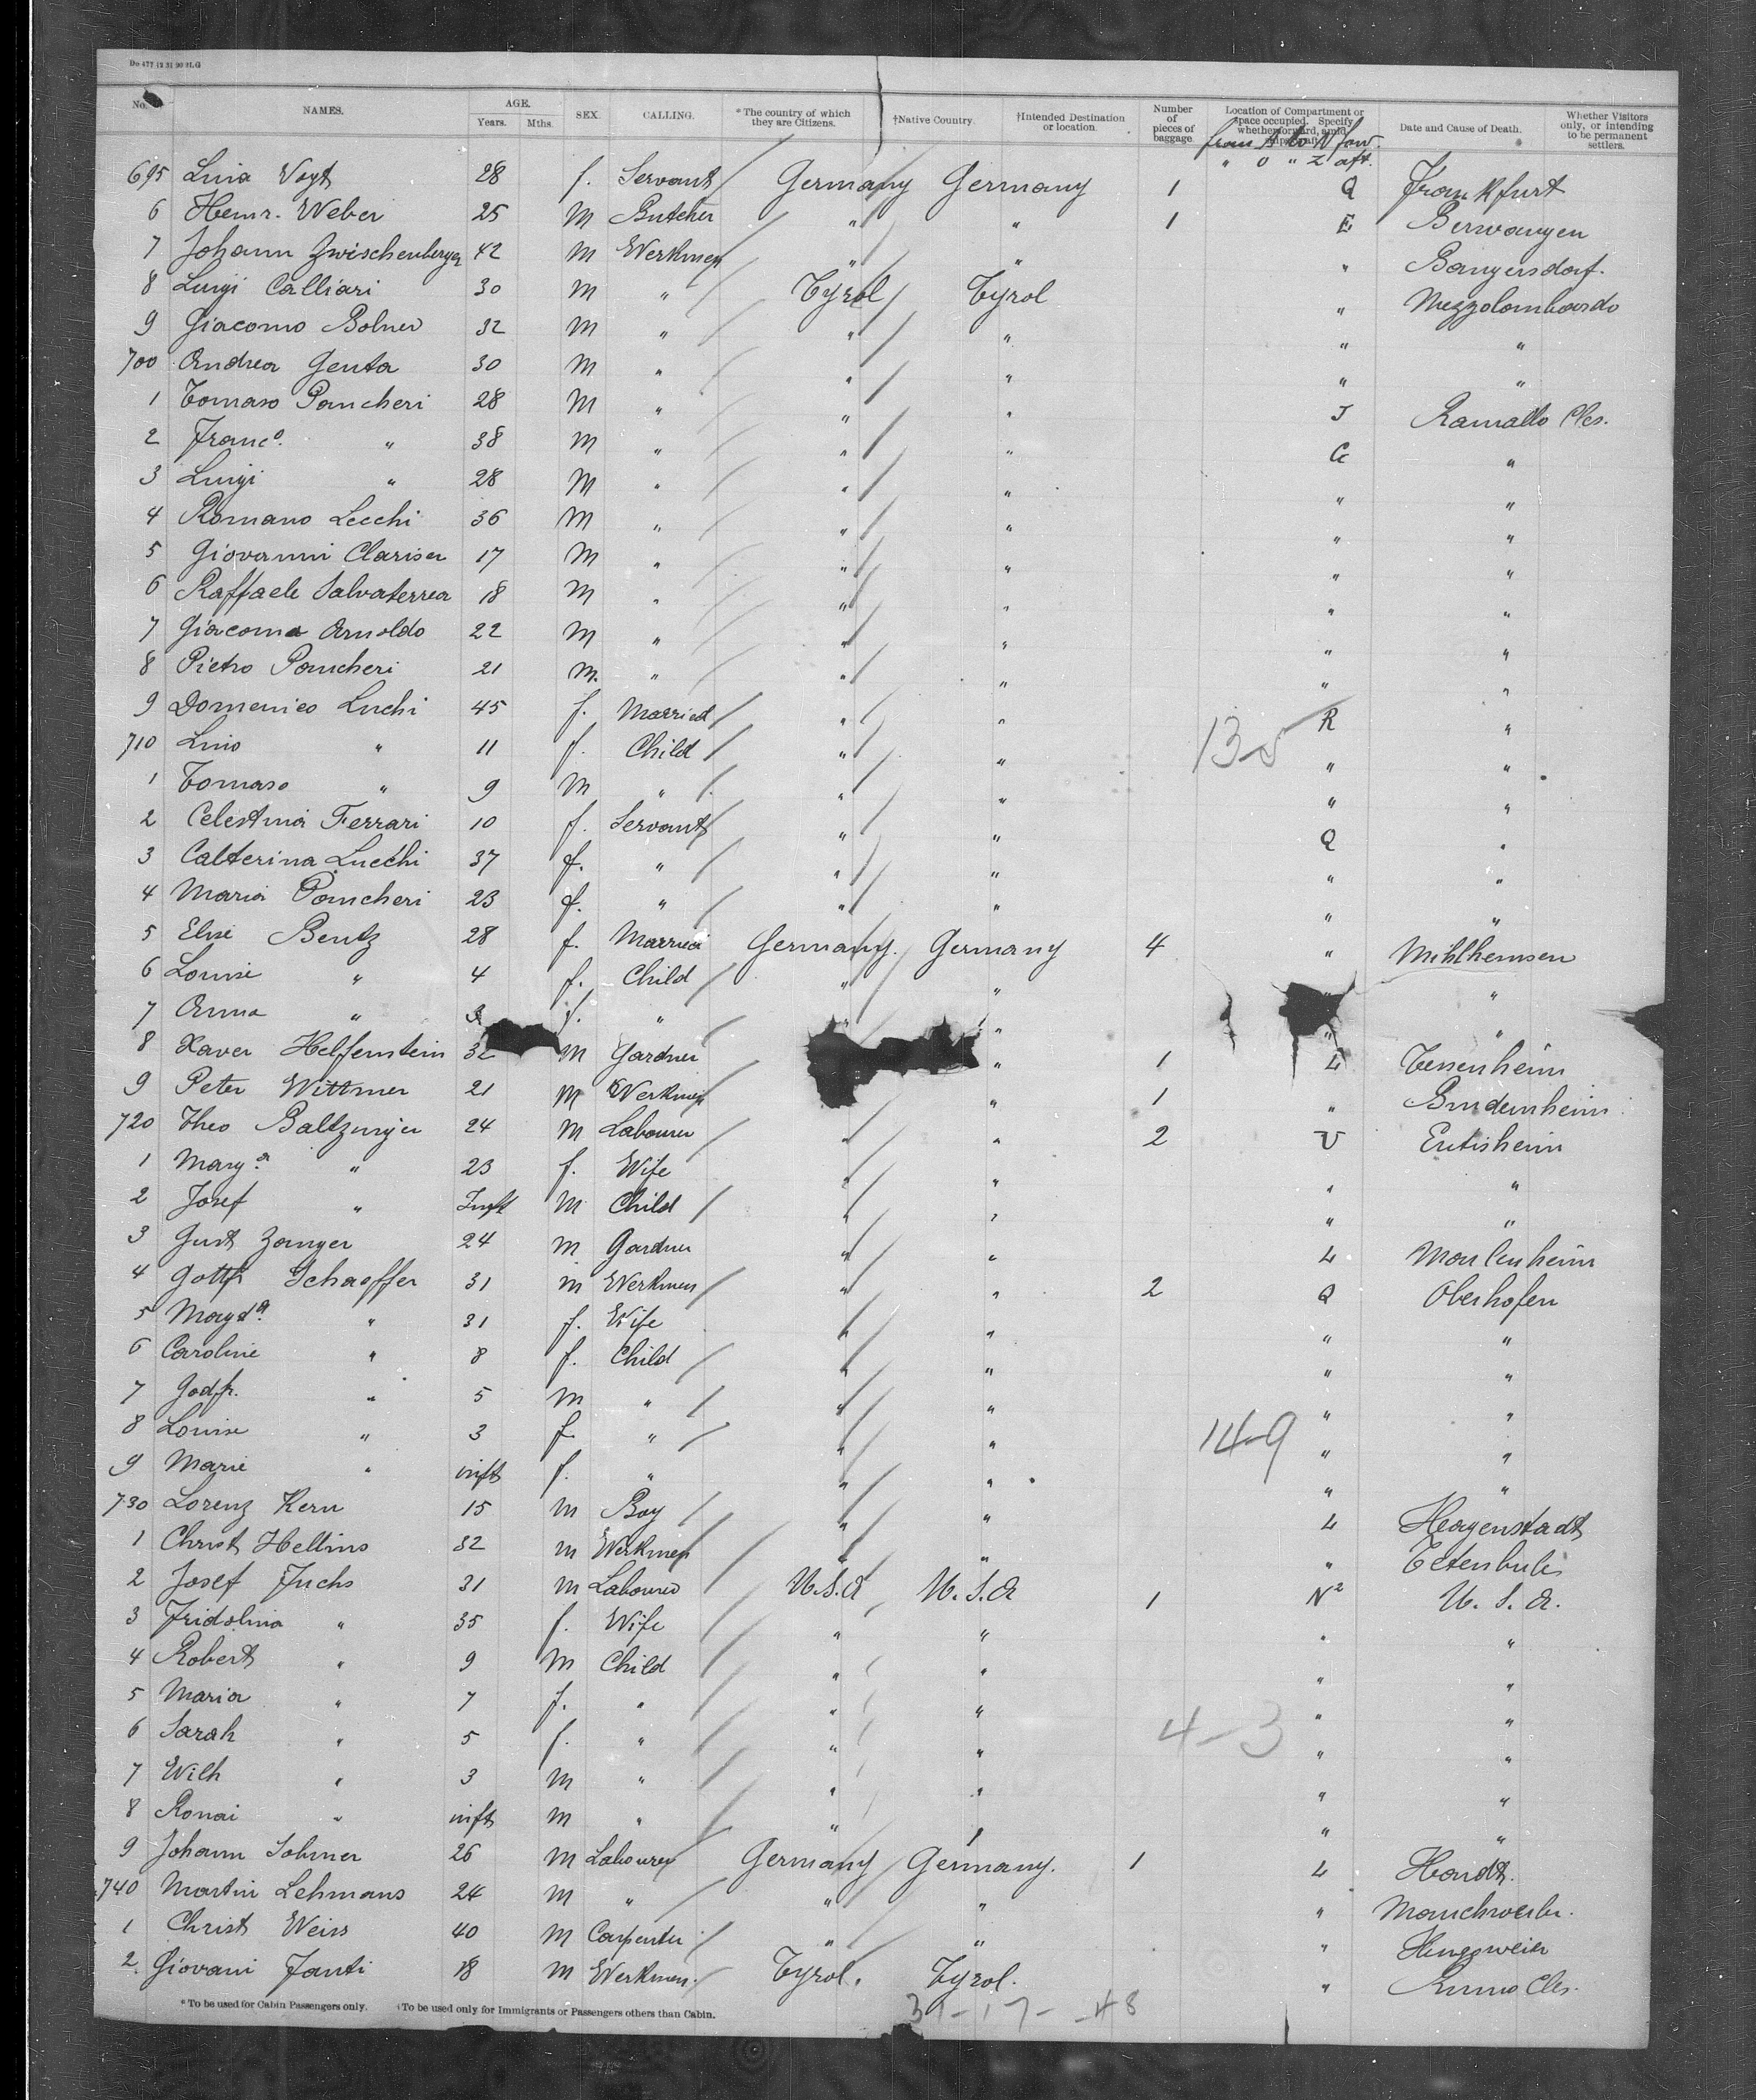 No. NAMES. AGE. Years. Mths. SEX. CALLING. *The country of which they are Citizens. †Native Country. †Intended Destination or location. Number of pieces of baggage Location of Compartment or space occupied. Specify whether forward, Date and Cause of Death. Whether Visitors only, or intending to be permanent settlers.
from A to N forw.
" O " Z aft.
695 Lina Vogt 28 f. Servant Germany Germany 1 Q Frankfurt
6 Heinr. Weber 25 M Butcher " " 1 E Berwangen
7 Johann Zwischenberger 42 M Werkmen " " " Bangersdorf.
8 Luigi Calliari 30 M " Tyrol Tyrol " Mezzolombardo
9 Giacomo Bolner 32 M " " " " "
700 Andrea Genta 30 M " " " " "
1 Tomaso Pancheri 28 M " " " J Ramallo Cles.
2 Franco. " 38 M " " " G "
3 Luigi " 28 M " " " " "
4 Romano Lecchi 36 M " " " " "
5 Giovanni Clariser 17 M " " " " "
6 Raffaele Salvaterrea 18 M " " " " "
7 Giacoma Arnoldo 22 M " " " " "
8 Pietro Pancheri 21 M. " " " " "
9 Domenico Luchi 45 f. Married " " R "
710 Lino " 11 f. Child " " " "
1 Tomaso " 9 M " " " " "
2 Celestina Ferrari 10 f. Servant " " Q "
3 Calterina Lucchi 37 f. " " " " "
4 Maria Pancheri 23 f. " " " " "
5 Elise Bentz 28 f. Married Germany. Germany 4 "
6 Louise " 4 f. Child " " "
7 Anna " f. " " " "
8 Xaver Helfenstein 32 M Gardner " 1 L Tessenheim
9 Peter Wittmer 21 M Werkmen " 1 " Burdenheim
720 Theo Baltzinger 24 M Labourer " " 2 U Entisheim
1 Marga " 23 f. Wife " " " "
2 Josef " Inft M Child " " " "
3 Gust Zanger 24 M Gardner " " L
4 Gottfr Schaeffer 31 m Werkmen " " 2 Q Oberhofen
5 Magda. " 31 f. Wife " " " "
6 Caroline " 8 f. Child " " " "
7 Godfr. " 5 M " " " " "
8 Louise " 3 f " " " " "
9 Marie " inft f. " " " " "
730 Lorenz Kern 15 m Boy " " L Hagenstadt
1 Christ Hellins 32 m Werkmen " " "
2 Josef Fuchs 31 m Labourer U.S.A U.S.A 1 N2 U.S.A.
3 Fridolina " 35 f. Wife " " " "
4 Robert " 9 M Child " " " "
5 Maria " 7 f. " " " " "
6 Sarah " 5 f. " " " " "
7 Wilh " 3 M " " " " "
8 Ronai " inft M " " " " "
9 Johann Sohmer 26 M Labourer Germany Germany. 1 L Hardt.
740 Martin Lehmans 24 M " " " "
1 Christ Weiss 40 M Carpenter " " "
2. Giovani Fanti 18 M Werkmen. Tyrol. Tyrol. " Rumo Cles.
13-5
14-9
4-3
*To be used for Cabin Passengers only. †To be used only for Immigrants or Passengers others than Cabin.
31-17-48